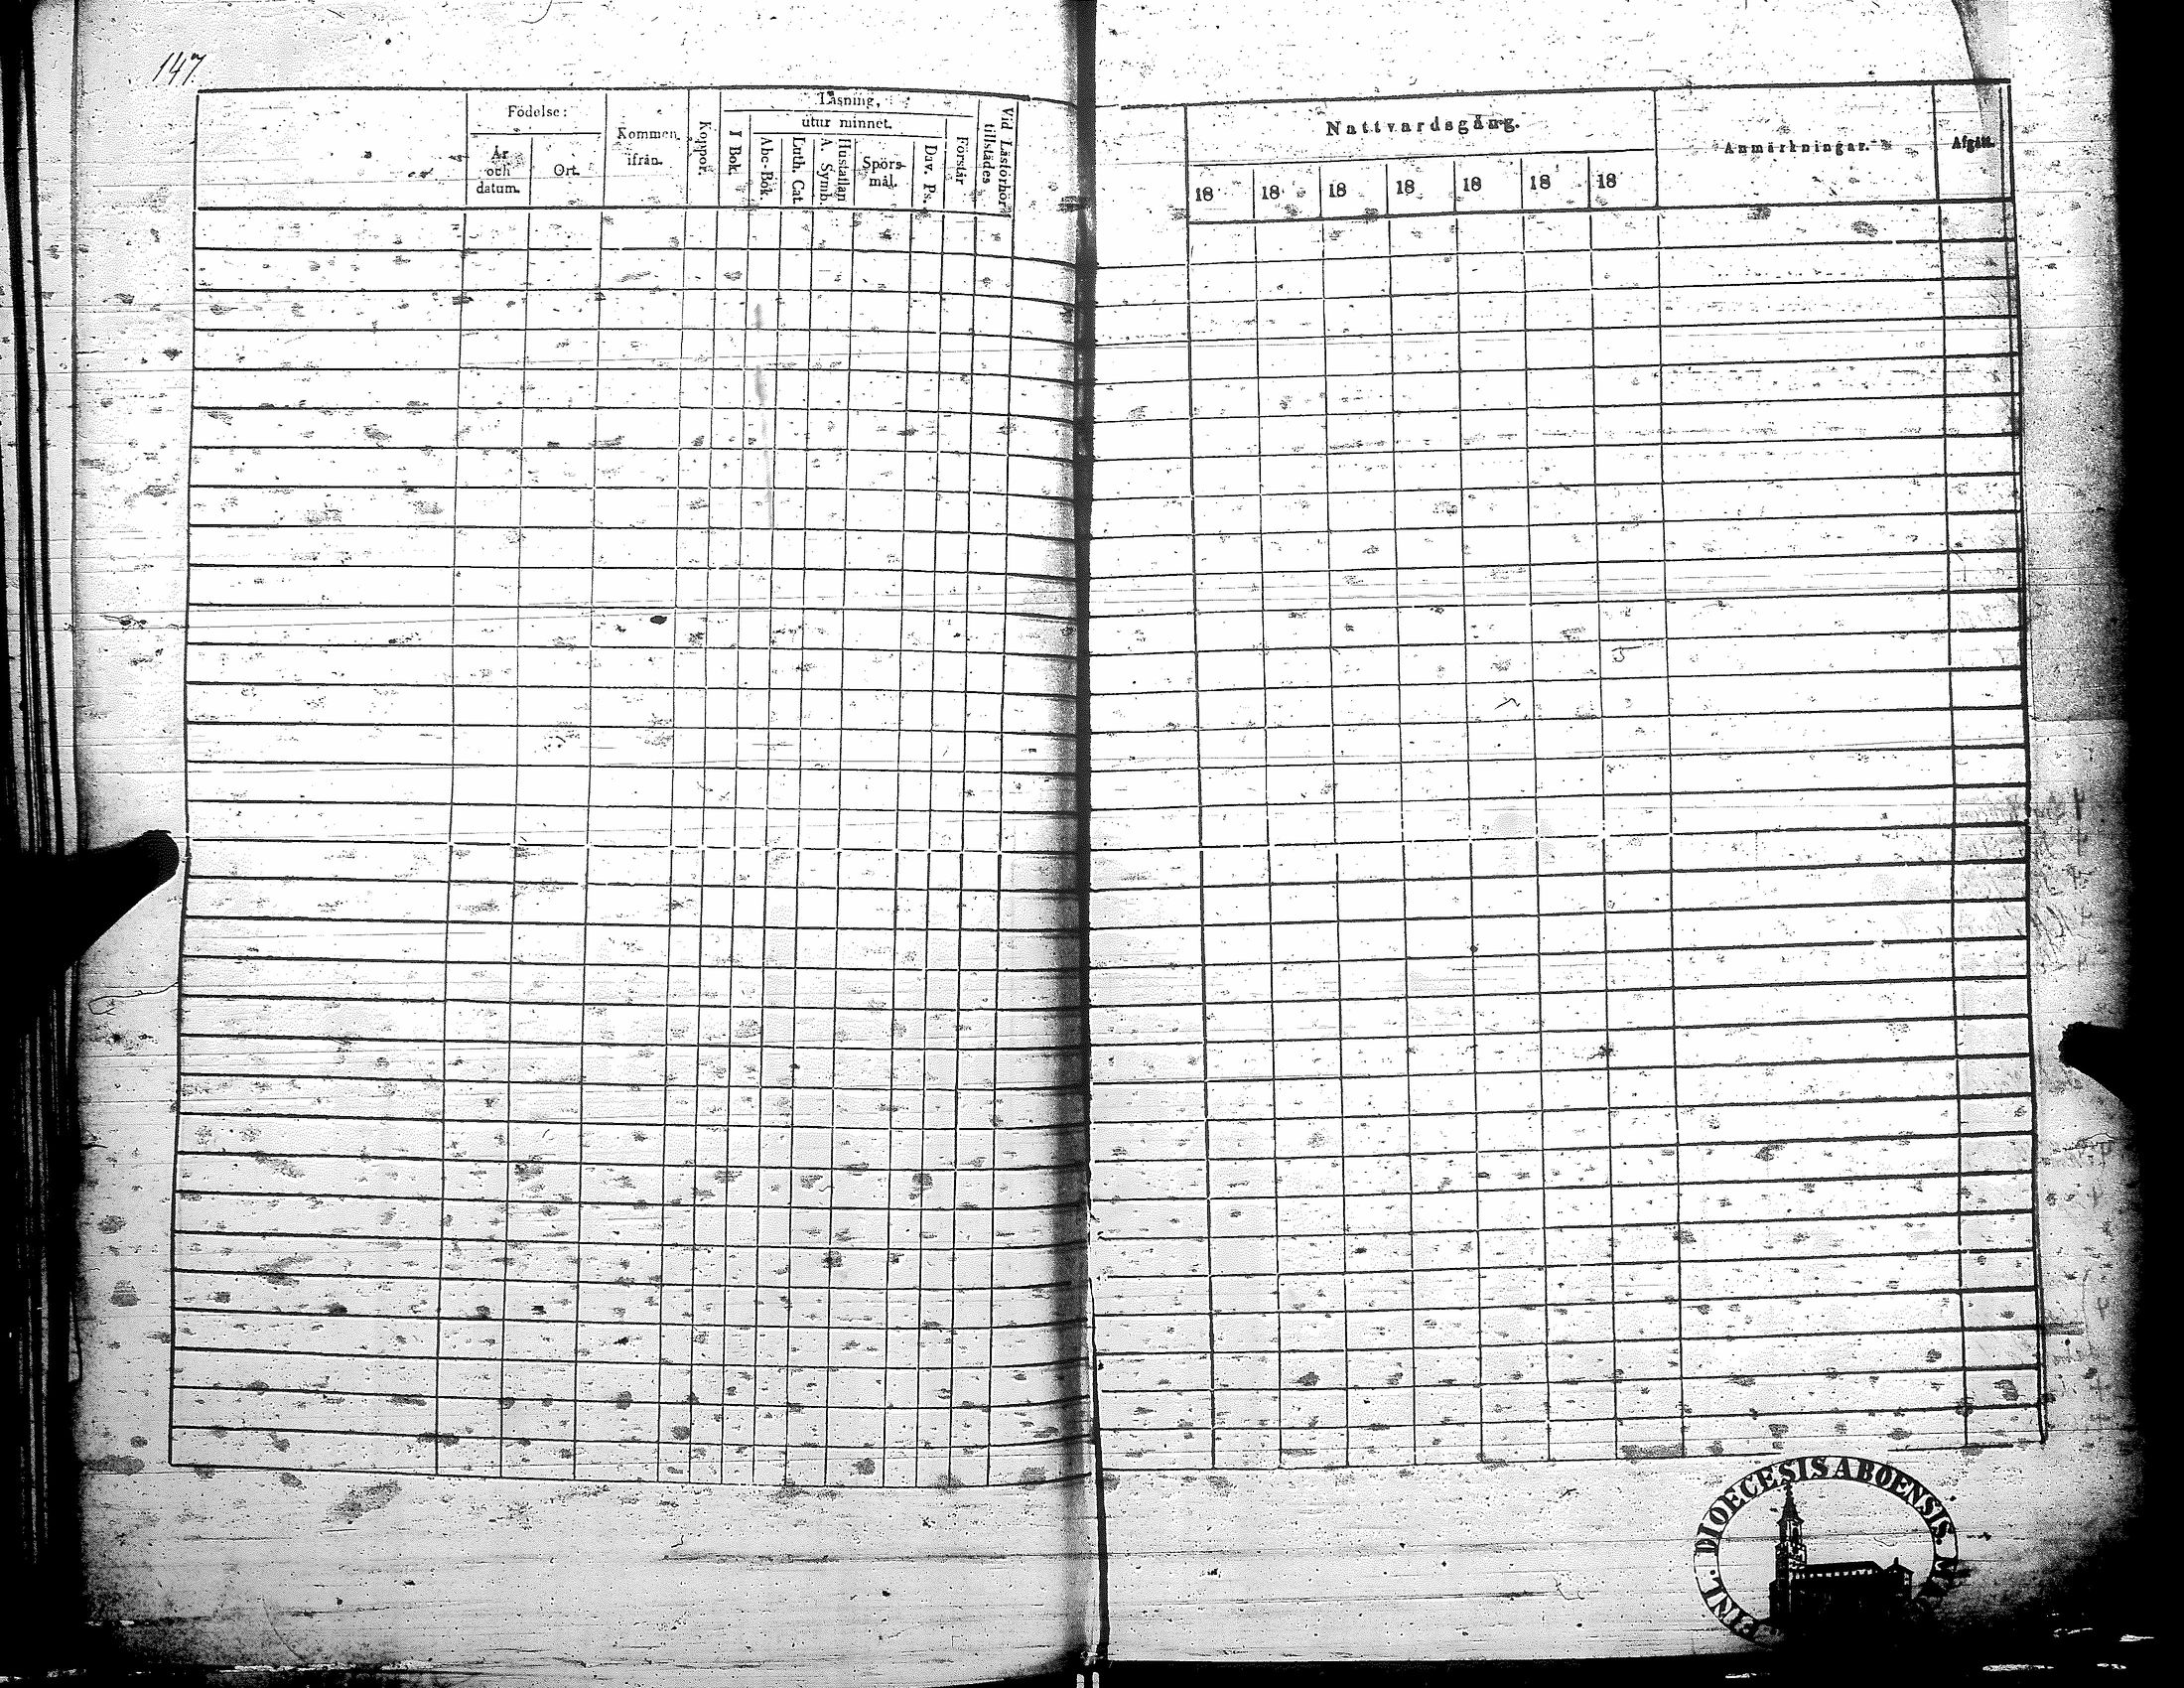 147.
Födelse:
År och datum.
Ort.
Kommen ifrån.
Koppor.
Läsning,
I Bok.
utur minnet.
Abc-Bok.
Luth. Cat
Hustaflan A. Symb.
Spörs-mål.
Dav. Ps.
Förstår
Vid Läsförhör tillstädes
Nattvardsgång.
18 18 18 18 18 18 18
Anmärkningar.
Afgått.
DIOECESIS ABOENSIS.